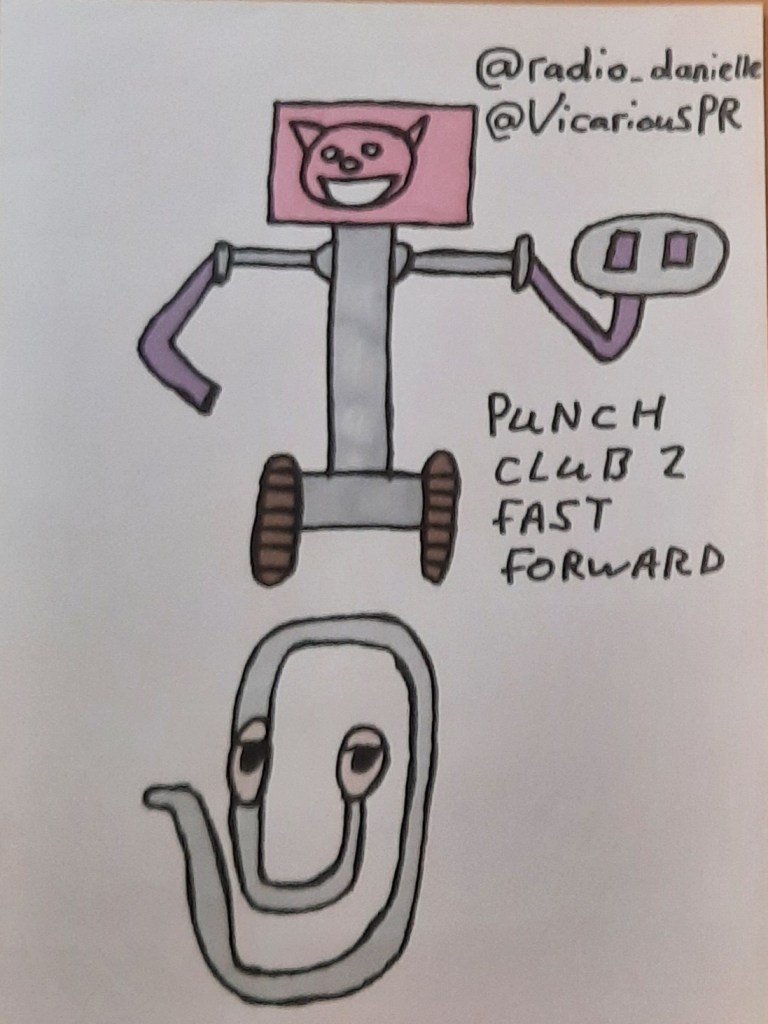 @radio_danielle
@VicariousPR
PUNCH
CLUB 2
FAST
FORWARD